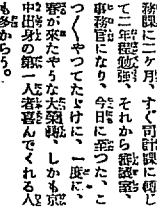 務課に二ヶ月、すぐ司計課に轉じ
て二年程勉强、それから秘書室、
事務官になり、今日に至つた、こ
つ〳〵やつてたゞけに、一度に、
春が來たやうな大榮轉、しかも京
中出身の第一人者喜んでくれる人
も多からう。